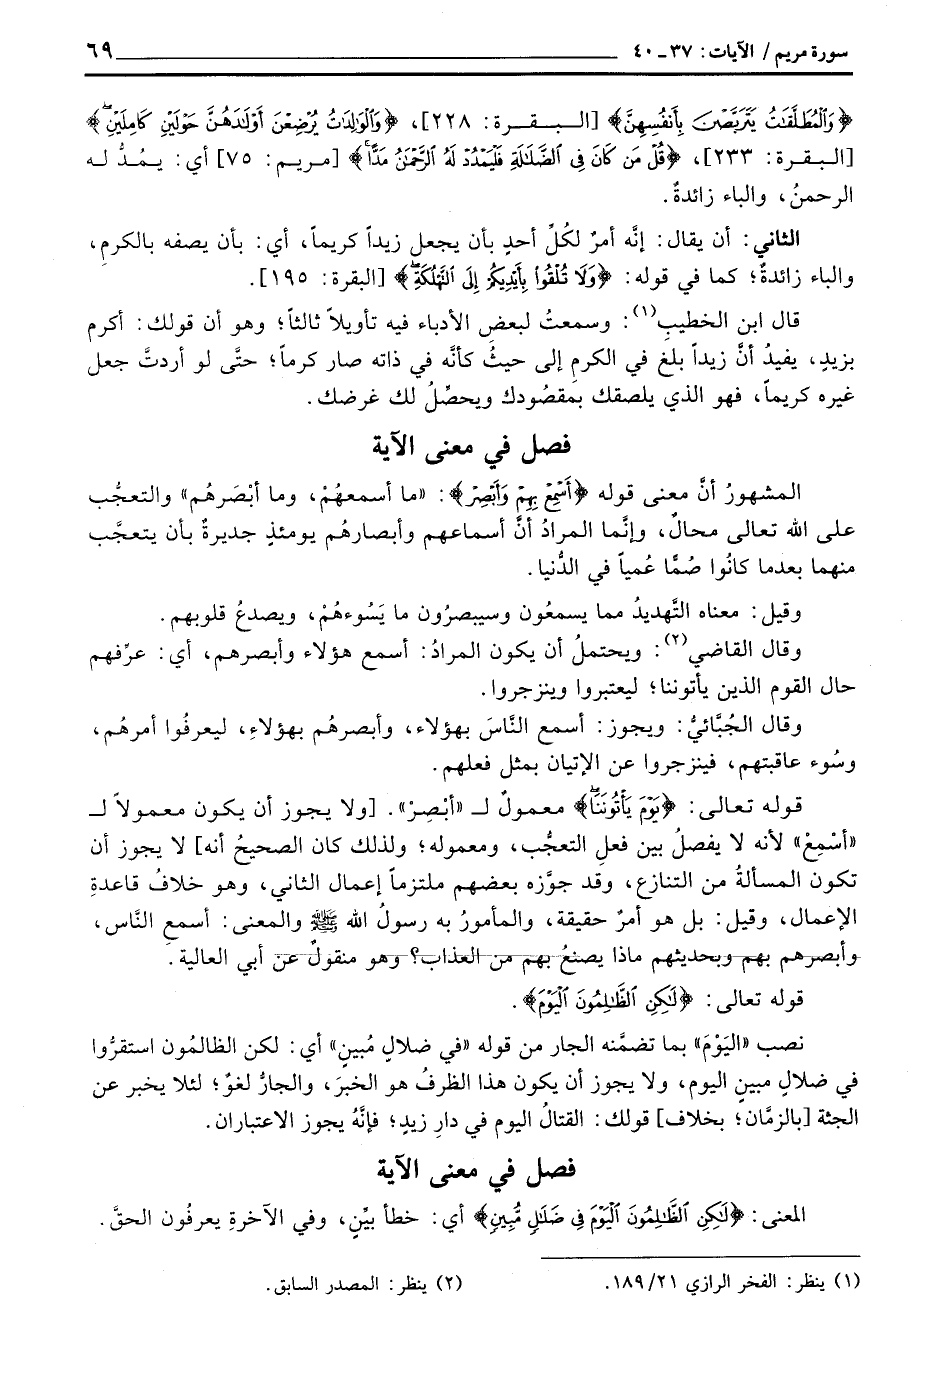 سورة مريم / الآيات : ٣٧ ـ ٤٠ ٦٩
﴿وَٱلْمُطَلَّقَٰتُ يَتَرَبَّصْنَ بِأَنفُسِهِنَّ﴾ [الـبـقـرة : ٢٢٨]، ﴿وَٱلْوَٰلِدَٰتُ يُرْضِعْنَ أَوْلَٰدَهُنَّ حَوْلَيْنِ كَامِلَيْنِۖ﴾
[البقرة : ٢٣٣]، ﴿قُلْ مَن كَانَ فِى ٱلضَّلَٰلَةِ فَلْيَمْدُدْ لَهُ ٱلرَّحْمَٰنُ مَدًّاۚ﴾ [مريم : ٧٥] أي : يمُدُّ له
الرحمنُ، والباء زائدةٌ.
الثاني : أن يقال : إنَّه أمرٌ لكُلِّ أحدٍ بأن يجعل زيداً كريماً، أي : بأن يصفه بالكرمِ،
والباء زائدةٌ؛ كما في قوله : ﴿وَلَا تُلْقُوا۟ بِأَيْدِيكُمْ إِلَى ٱلتَّهْلُكَةِۛ﴾ [البقرة : ١٩٥].
قال ابن الخطيبِ(١) : وسمعتُ لبعضِ الأدباء فيه تأويلاً ثالثاً؛ وهو أن قولك : أكرم
بزيدٍ، يفيدُ أنَّ زيداً بلغ في الكرمِ إلى حيثُ كأنَّه في ذاته صار كرماً؛ حتَّى لو أردتَّ جعل
غيره كريماً، فهو الذي يلصقك بمقصُودك ويحصِّلُ لك غرضك.
فصل في معنى الآية
المشهورُ أنَّ معنى قوله ﴿أَسْمِعْ بِهِمْ وَأَبْصِرْ﴾ : «ما أسمعهُمْ، وما أبْصَرهُم» والتعجُّب
على الله تعالى محالٌ، وإنَّما المرادُ أنَّ أسماعهم وأبصارهُم يومئذٍ جديرةٌ بأن يتعجَّب
منهما بعدما كانُوا صُمًّا عُمياً في الدُّنيا.
وقيل : معناه التَّهديدُ مما يسمعُون وسيبصرُون ما يَسُوءهُمْ، ويصدعُ قلوبهم.
وقال القاضي(٢) : ويحتملُ أن يكون المرادُ : أسمع هؤلاء وأبصرهم، أي : عرِّفهم
حال القوم الذين يأتوننا؛ ليعتبروا وينزجروا.
وقال الجُبَّائيُّ : ويجوز : أسمع النَّاسَ بهؤلاء، وأبصرهُم بهؤلاءِ، ليعرفُوا أمرهُم،
وسُوء عاقبتهم، فينزجروا عن الإتيان بمثل فعلهم.
قوله تعالى : ﴿يَوْمَ يَأْتُونَنَاۖ﴾ معمولٌ لـ «أبْصِرْ». [ولا يجوز أن يكون معمولاً لـ
«أسْمِعْ» لأنه لا يفصلُ بين فعلِ التعجُّب، ومعموله؛ ولذلك كان الصحيحُ أنه] لا يجوز أن
تكون المسألةُ من التنازع، وقد جوَّزه بعضهم ملتزماً إعمال الثاني، وهو خلافُ قاعدةِ
الإعمال، وقيل : بل هو أمرٌ حقيقة، والمأمورُ به رسولُ الله ﷺ والمعنى : أسمعِ النَّاس،
وأبصرهم بهم وبحديثهم ماذا يصنعُ بهم من العذاب؟ وهو منقولٌ عن أبي العالية.
قوله تعالى : ﴿لَٰكِنِ ٱلظَّٰلِمُونَ ٱلْيَوْمَ﴾.
نصب «اليَوْمَ» بما تضمَّنه الجار من قوله «في ضلالٍ مُبينٍ» أي : لكن الظالمُون استقرُّوا
في ضلالٍ مبينٍ اليوم، ولا يجوز أن يكون هذا الظرفُ هو الخبرَ، والجارُّ لغوٌ؛ لئلا يخبر عن
الجثة [بالزمَّان؛ بخلاف] قولك : القتالُ اليوم في دارِ زيدٍ؛ فإنَّهُ يجوز الاعتباران.
فصل في معنى الآية
المعنى : ﴿لَٰكِنِ ٱلظَّٰلِمُونَ ٱلْيَوْمَ فِى ضَلَٰلٍ مُّبِينٍ﴾ أي : خطأ بيِّنٍ، وفي الآخرةِ يعرفُون الحقَّ.
(١) ينظر : الفخر الرازي ٢١/ ١٨٩. (٢) ينظر : المصدر السابق.